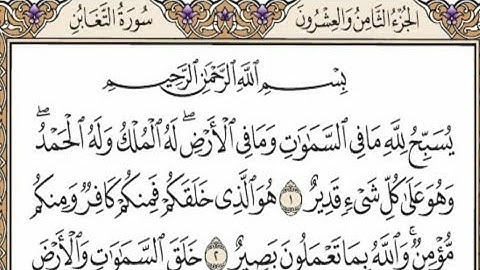 الجُزْءُ الثَّامِنُ وَالعِشْرُونَ سُورَةُ التَّغَابُنِ
بِسْمِ اللَّهِ الرَّحْمَٰنِ الرَّحِيمِ
يُسَبِّحُ لِلَّهِ مَا فِي السَّمَٰوَٰتِ وَمَا فِي الْأَرْضِ ۖ لَهُ الْمُلْكُ وَلَهُ الْحَمْدُ ۖ
وَهُوَ عَلَىٰ كُلِّ شَيْءٍ قَدِيرٌ ١ هُوَ الَّذِي خَلَقَكُمْ فَمِنكُمْ كَافِرٌ وَمِنكُم
مُّؤْمِنٌ ۚ وَاللَّهُ بِمَا تَعْمَلُونَ بَصِيرٌ ٢ خَلَقَ السَّمَٰوَٰتِ وَالْأَرْضَ